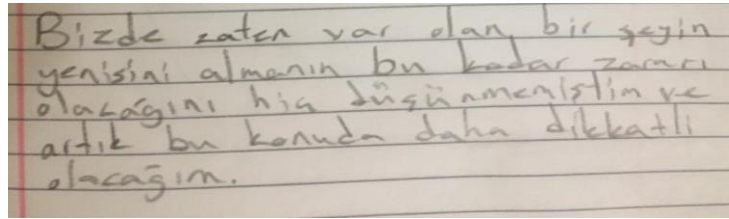 Bizde zaten var olan bir şeyin
yenisini almanın bu kadar zararı
olacağını hiç düşünmemiştim ve
artık bu konuda daha dikkatli
olacağım.